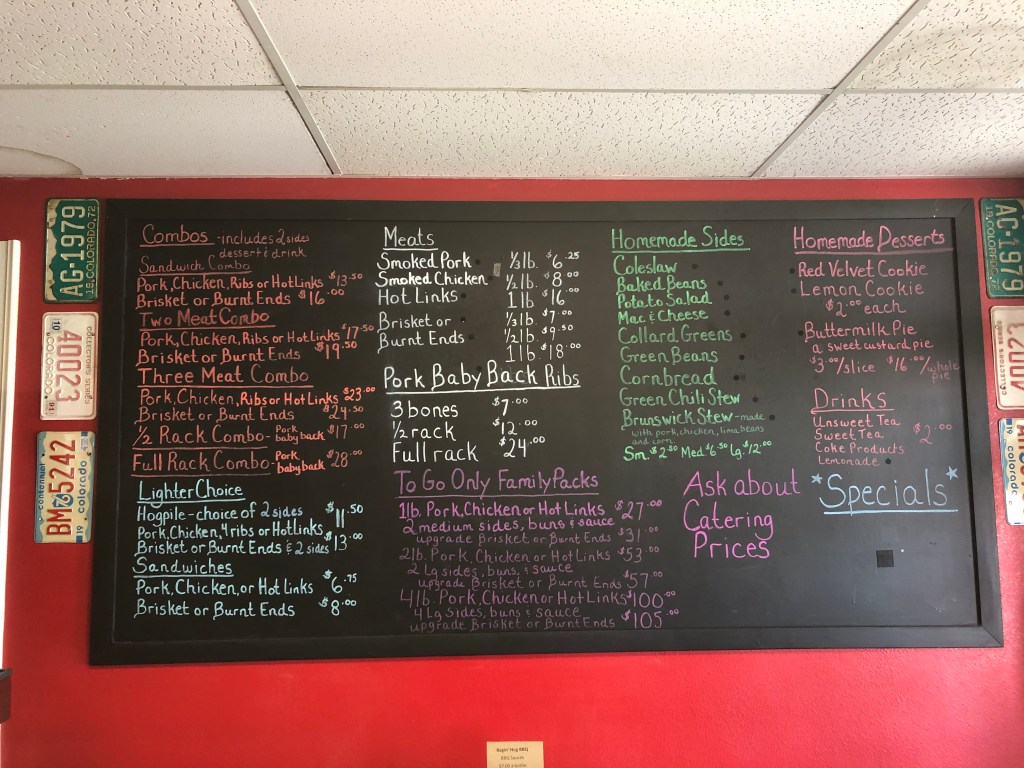 Combos - includes 2 sides
dessert & drink
Sandwich Combo
Pork, Chicken, Ribs or Hot Links $13.50
Brisket or Burnt Ends $16.00
Two Meat Combo
Pork, Chicken, Ribs or Hot Links $17.50
Brisket or Burnt Ends $19.50
Three Meat Combo
Pork, Chicken, Ribs or Hot Links $23.00
Brisket or Burnt Ends $24.50
1/2 Rack Combo - Pork baby back $17.00
Full Rack Combo - Pork baby back $28.00
Lighter Choice
Hogpile - choice of 2 sides $11.50
Pork, Chicken, 4 ribs or Hot Links
Brisket or Burnt Ends & 2 sides $13.00
Sandwiches
Pork, Chicken, or Hot Links $6.75
Brisket or Burnt Ends $8.00
Meats
Smoked Pork 1/3 lb. $6.25
Smoked Chicken 1/2 lb. $8.00
Hot Links 1 lb $16.00
Brisket or 1/3 lb. $7.00
Burnt Ends 1/2 lb $9.50
1 lb. $18.00
Pork Baby Back Ribs
3 bones $7.00
1/2 rack $12.00
Full rack $24.00
To Go Only Family Packs
1 lb. Pork, Chicken or Hot Links $27.00
2 medium sides, buns & sauce
upgrade Brisket or Burnt Ends $31.00
2 lb. Pork, Chicken or Hot Links $53.00
2 Lg sides, buns, & sauce
upgrade Brisket or Burnt Ends $57.00
4 lb. Pork, Chicken or Hot Links $100.00
4 Lg sides, buns & sauce
upgrade Brisket or Burnt Ends $105.00
Homemade Sides
Coleslaw
Baked Beans
Potato Salad
Mac & Cheese
Collard Greens
Green Beans
Cornbread
Green Chili Stew
Brunswick Stew - made
with pork, chicken, lima beans
and corn
Sm. $2.50 Med $6.50 Lg. $12.00
Ask about
Catering
Prices
Homemade Desserts
Red Velvet Cookie
Lemon Cookie
$2.00 each
Buttermilk Pie
a sweet custard pie
$3.00/slice $16.00/whole pie
Drinks
Unsweet Tea
Sweet Tea $2.00
Coke Products
Lemonade
*Specials*
AG-1979
19 COLORADO 72
10
40023
COLLECTORS SERIES
91
centennial
BM 5242
19 colorado
AC-1979
40023
COLLECTORS SERIES
colorado
Ragin' Hog BBQ
BBQ Sauces
$7.00 a bottle